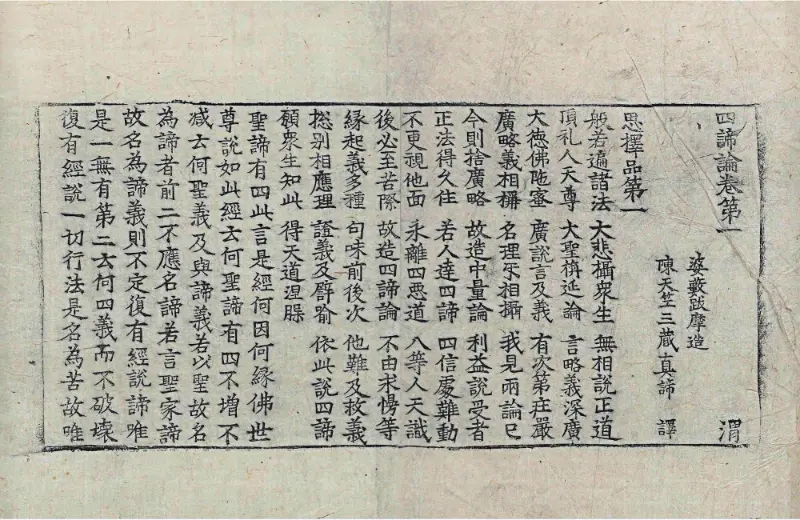 四諦論卷第一　渭
婆藪跋摩造
陳天竺三藏真諦　譯
思擇品第一
般若遍諸法　大悲攝衆生　無相說正道
頂礼人天尊　大聖旃延論　言略義深廣
大德佛陁蜜　廣說言及義　有次苐庄嚴
廣略義相稱　名理玄相攝　我見兩論已
今則捨廣略　故造中量論　利益說受者
正法得久住　若人達四諦　四信處難動
不更視他面　永離四惡道　八等人天識
後必至苦際　故造四諦論　不由求慢等
緣起義多種　句味前後次　他難及救義
捴別相應理　證義及辟喻　依此說四諦
願衆生知此　得天道涅槃
聖諦有四此言是經何因何緣佛世
尊說如此經云何聖諦有四不增不
減云何聖義及與諦義若以聖故名
為諦者前二不應名諦若言聖家諦
故名為諦義則不定復有經說諦唯
是一無有第二云何四義而不破壞
復有經說一切行法是名為苦故唯